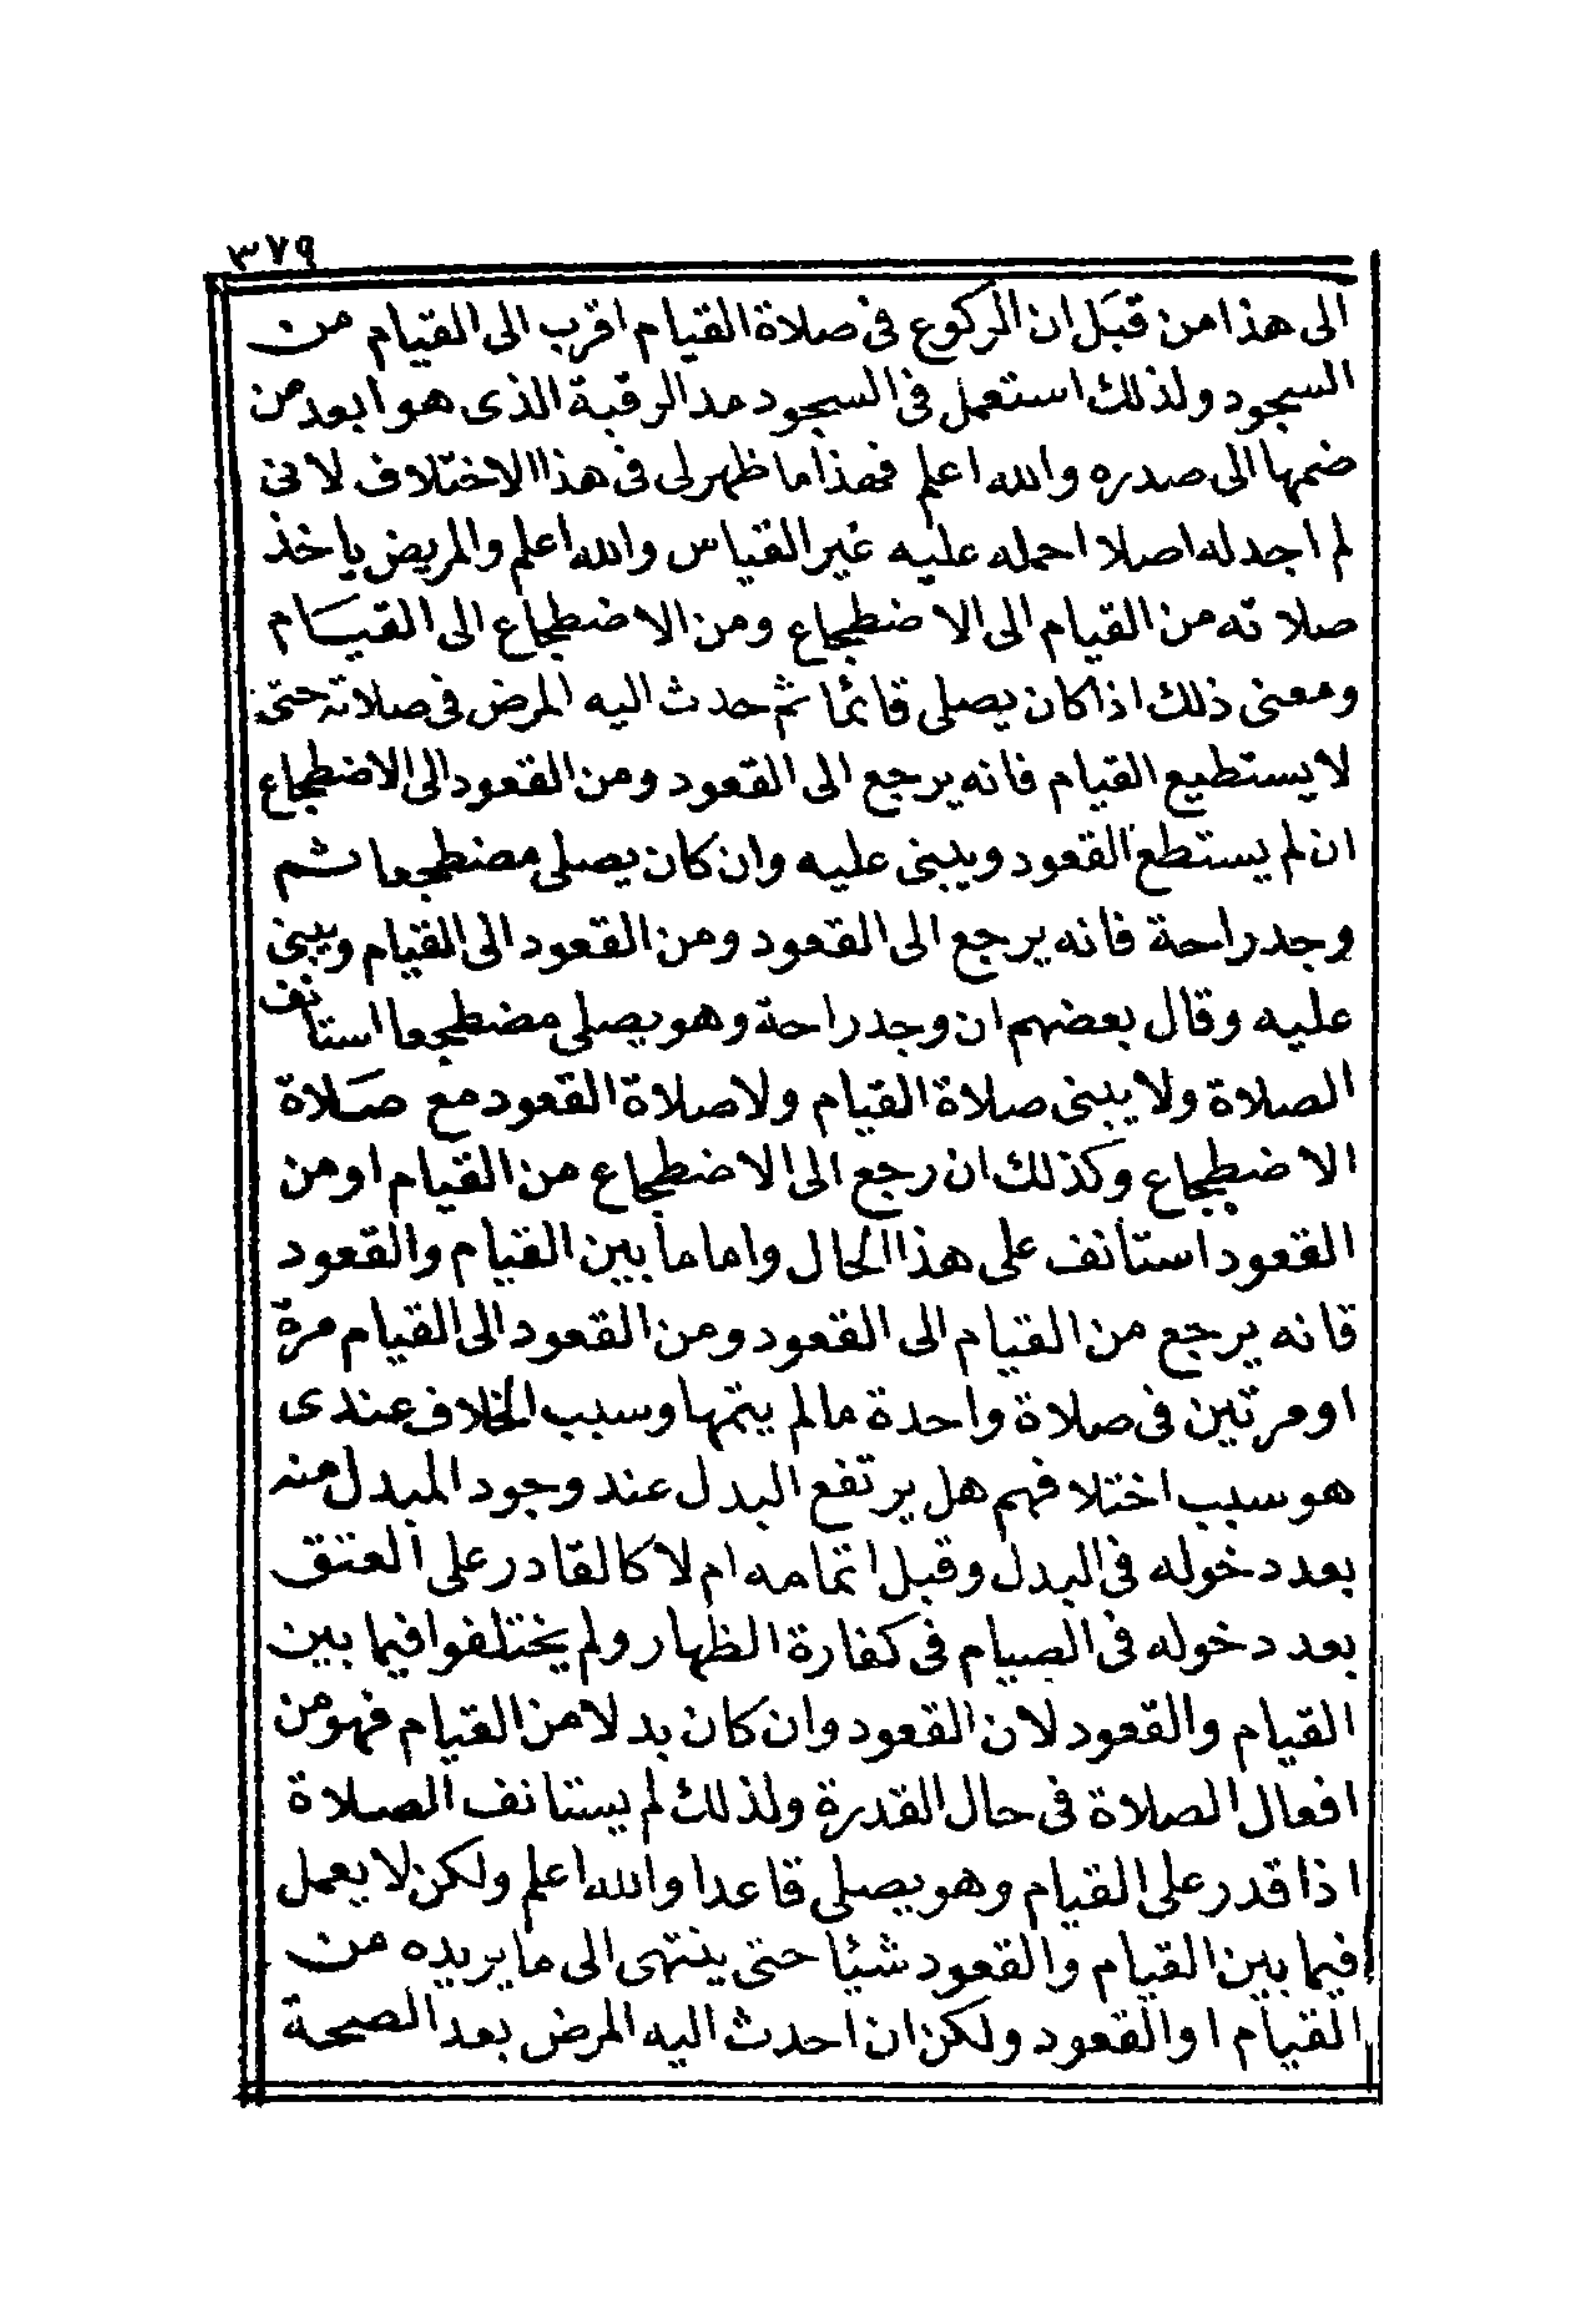 ٣٧٩
الى هذا من قبَل ان الركوع فى صلاة القيام اقرب الى القيام من
السجود ولذلك استعمل فى السجود مد الرقبة الذى هو ابعد من
ضمها الى صدره والله اعلم فهذا ما ظهر لى فى هذا الاختلاف لانى
لم اجد له اصلا احمله عليه غير القياس والله اعلم والمريض ياخذ
صلاته من القيام الى الاضطجاع ومن الاضطجاع الى القيَام
ومعنى ذلك اذا كان يصلى قائما ثم حدث اليه المرض فى صلاته حتى
لا يستطيع القيام فانه يرجع الى القعود ومن القعود الى الاضطجاع
ان لم يستطع القعود ويبنى عليه وان كان يصلى مضطجعا ثم
وجد راحة فانه يرجع الى القعود ومن القعود الى القيام ويبنى
عليه وقال بعضهم ان وجد راحة وهو يصلى مضطجعا استانف
الصلاة ولا يبنى صلاة القيام ولا صلاة القعود مع صَلاة
الاضطجاع وكذلك ان رجع الى الاضطجاع من القيام او من
القعود استانف على هذا الحال واما ما بين القيام والقعود
فانه يرجع من القيام الى القعود ومن القعود الى القيام مرة
او مرتين فى صلاة واحدة ما لم يتمها وسبب الخلاف عندى
هو سبب اختلافهم هل يرتفع البدل عند وجود المبدل منه
بعد دخوله فى البدل وقبل اتمامه ام لا كالقادر على العتق
بعد دخوله فى الصيام فى كفارة الظهار ولم يختلفوا فيما بين
القيام والقعود لان القعود وان كان بدلا من القيام فهو من
افعال الصلاة فى حال القدرة ولذلك لم يستانف الصلاة
اذا قدر على القيام وهو يصلى قاعدا والله اعلم ولكن لا يعمل
فيما بين القيام والقعود شيئا حتى ينتهى الى ما يريده من
القيام او القعود ولكن ان احدث اليه المرض بعد الصحة